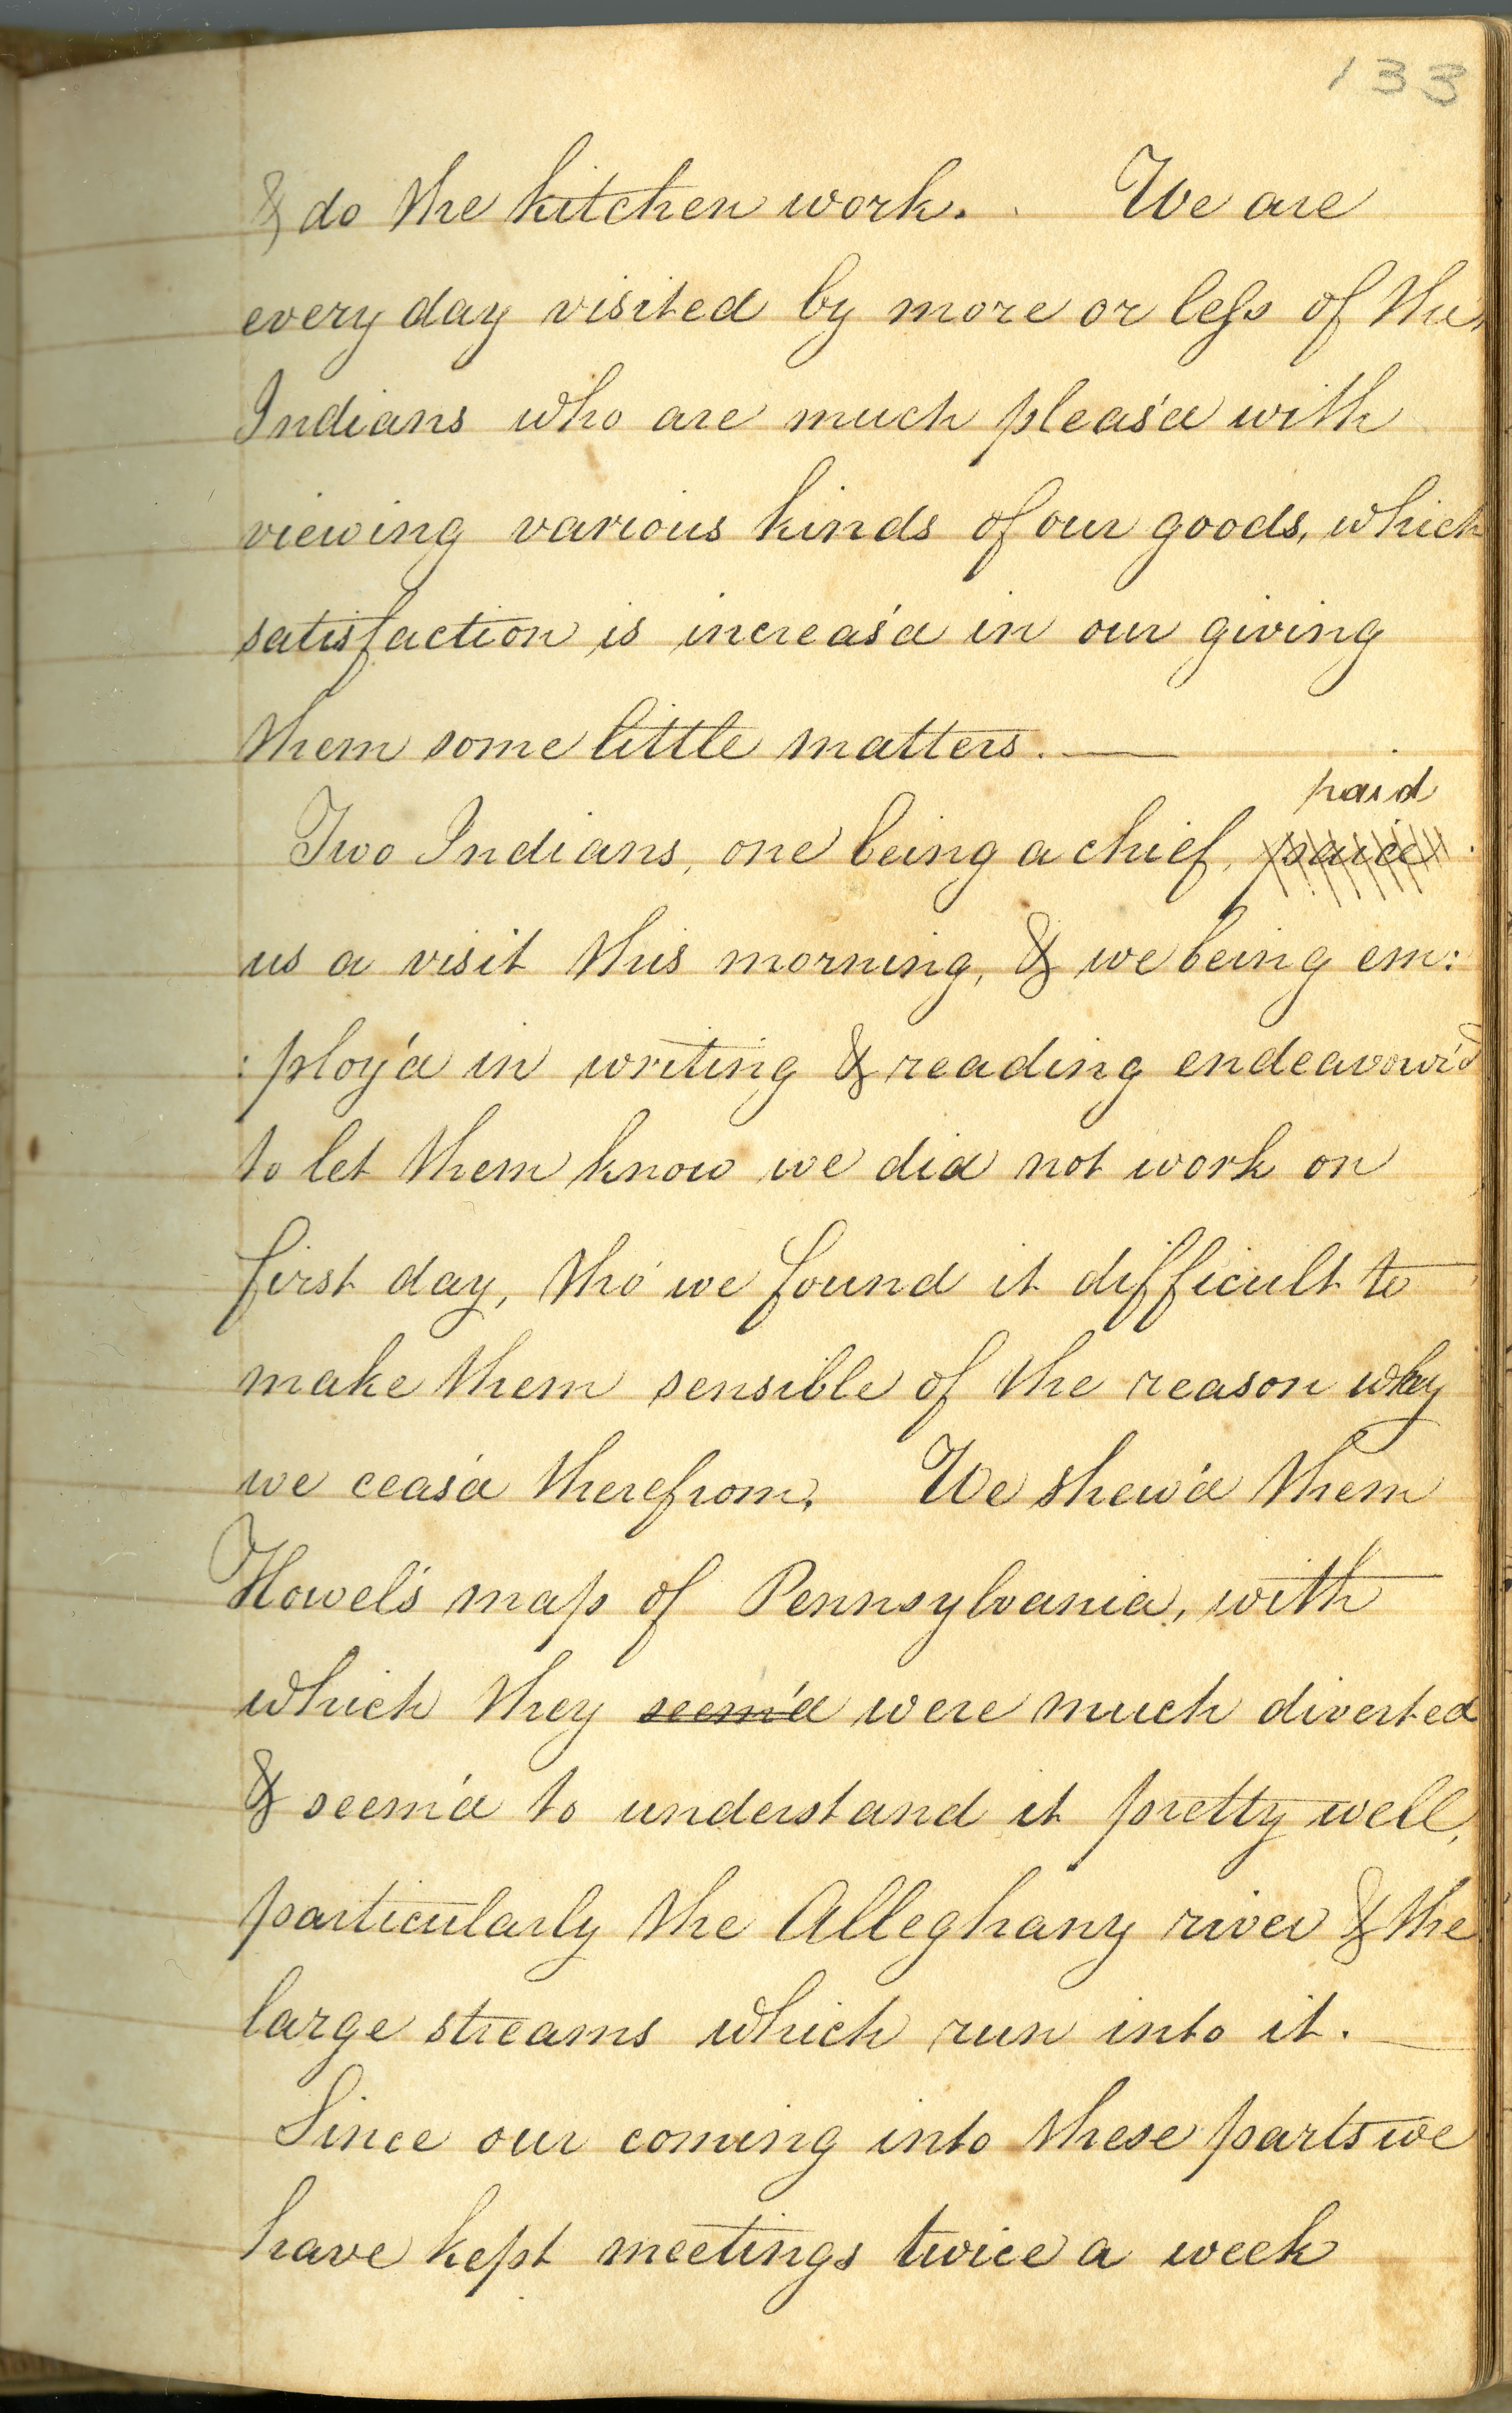 133
& do the kitchen work. We are
every day visited by more or less of the
Indians who are much pleas'd with
viewing various kinds of our goods, which
satisfaction is increas'd in our giving
them some little matters. —
paid
Two Indians, one being a chief,
us a visit this morning, & we being em:
:ploy'd in writing & reading endeavour'd
to let them know we did not work on
first day, tho' we found it difficult to
make them sensible of the reason why
we ceas'd therefrom. We shew'd them
Howel's map of Pennsylvania, with
which they seem'd were much diverted
& seem'd to understand it pretty well,
particularly the Alleghany river & the
large streams which run into it. —
Since our coming into these parts we
have kept meetings twice a week